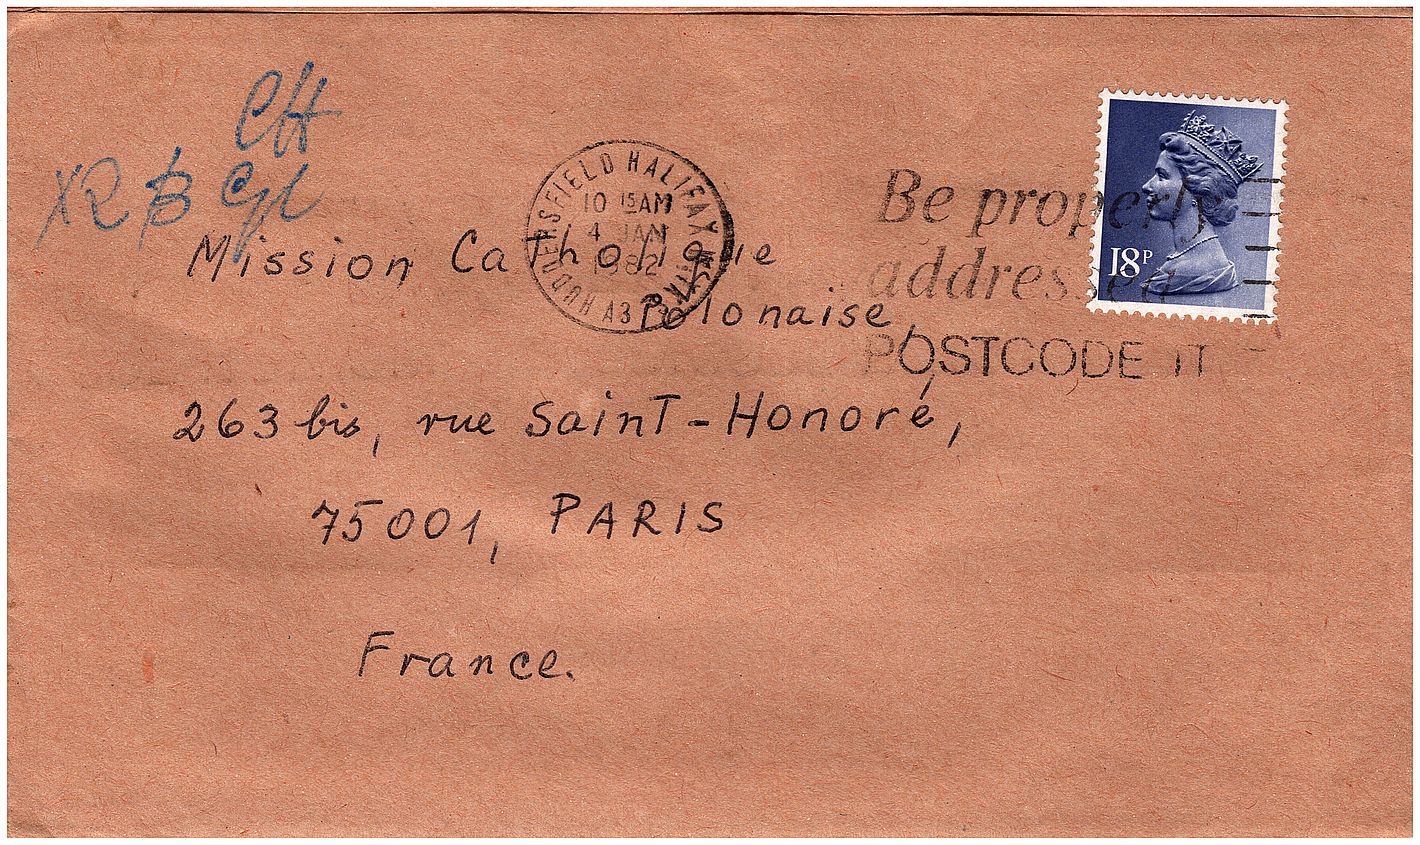 Mission Catholique
Polonaise,
263 bis, rue Saint-Honoré,
75001, PARIS
France.
HUDDERSFIELD HALIFAX
10 15AM
4 JAN
1982
A3
Be properly
addressed
POSTCODE IT
18P